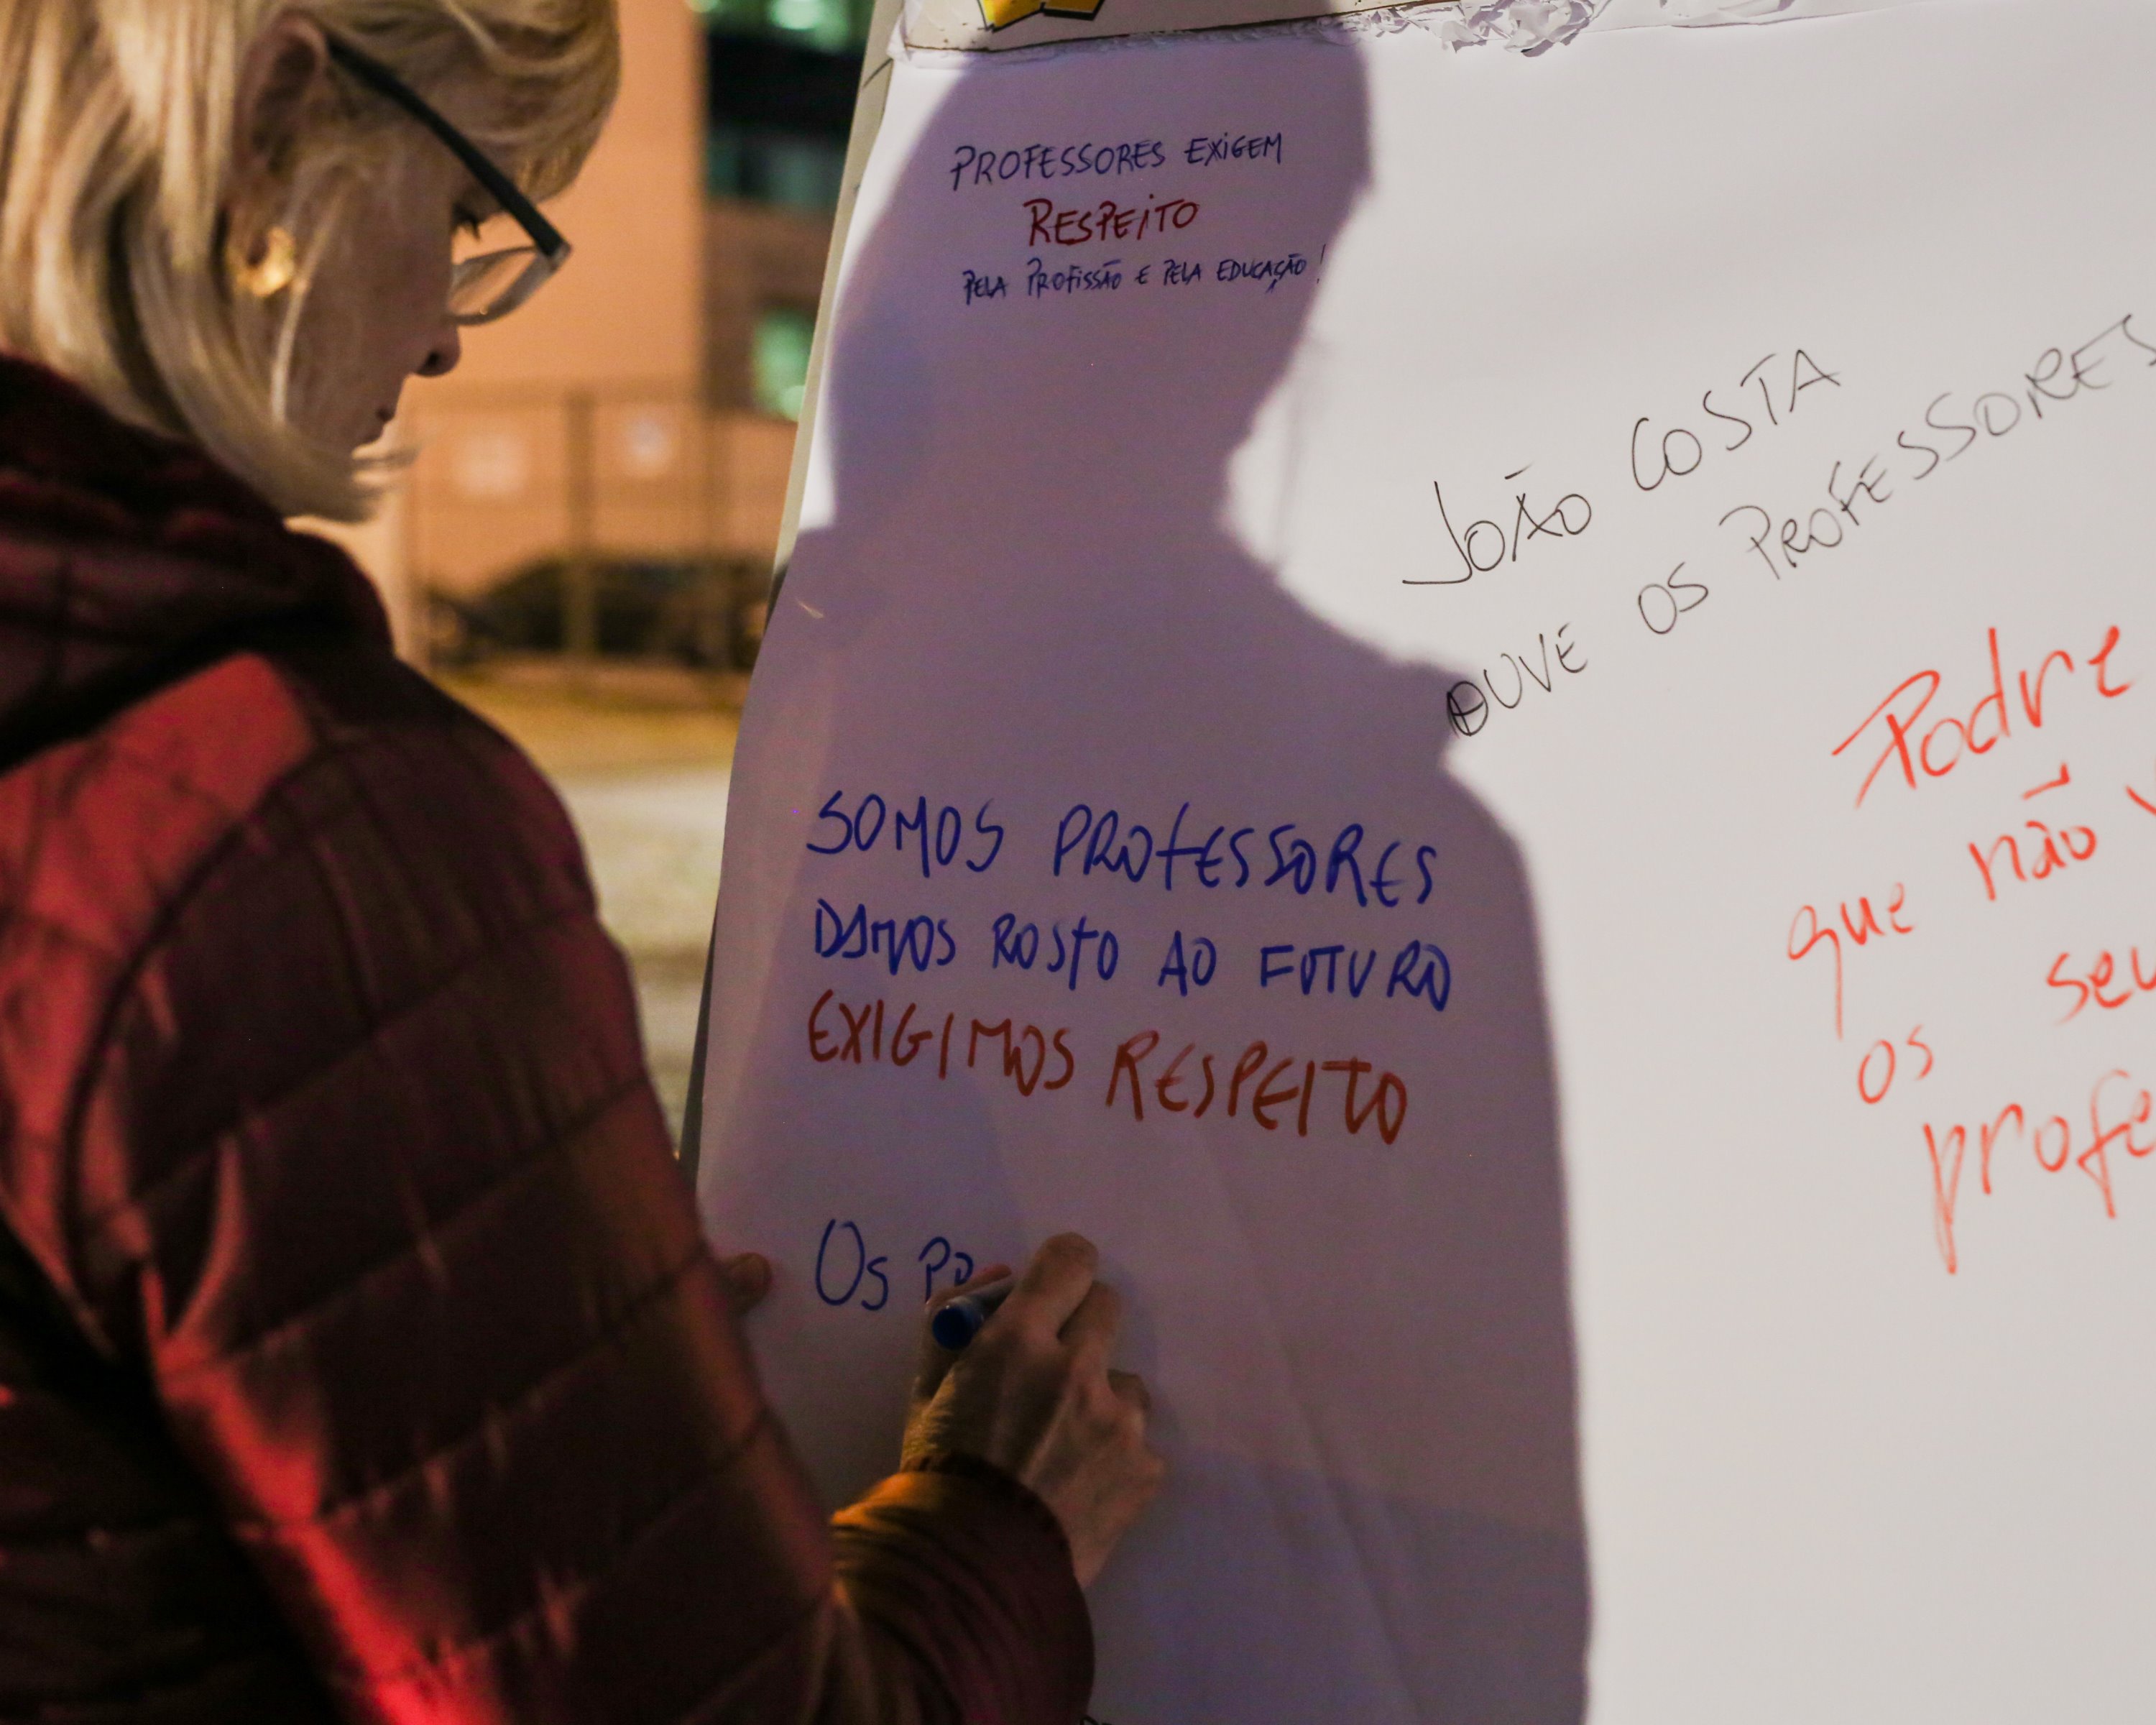 PROFESSORES EXIGEM
RESPEITO
PELA PROFISSÃO E PELA EDUCAÇÃO!
JOÃO COSTA
OUVE OS PROFESSORES
SOMOS PROFESSORES
DAMOS ROSTO AO FUTURO
EXIGIMOS RESPEITO
Os
Podre
que não
os seu
profe